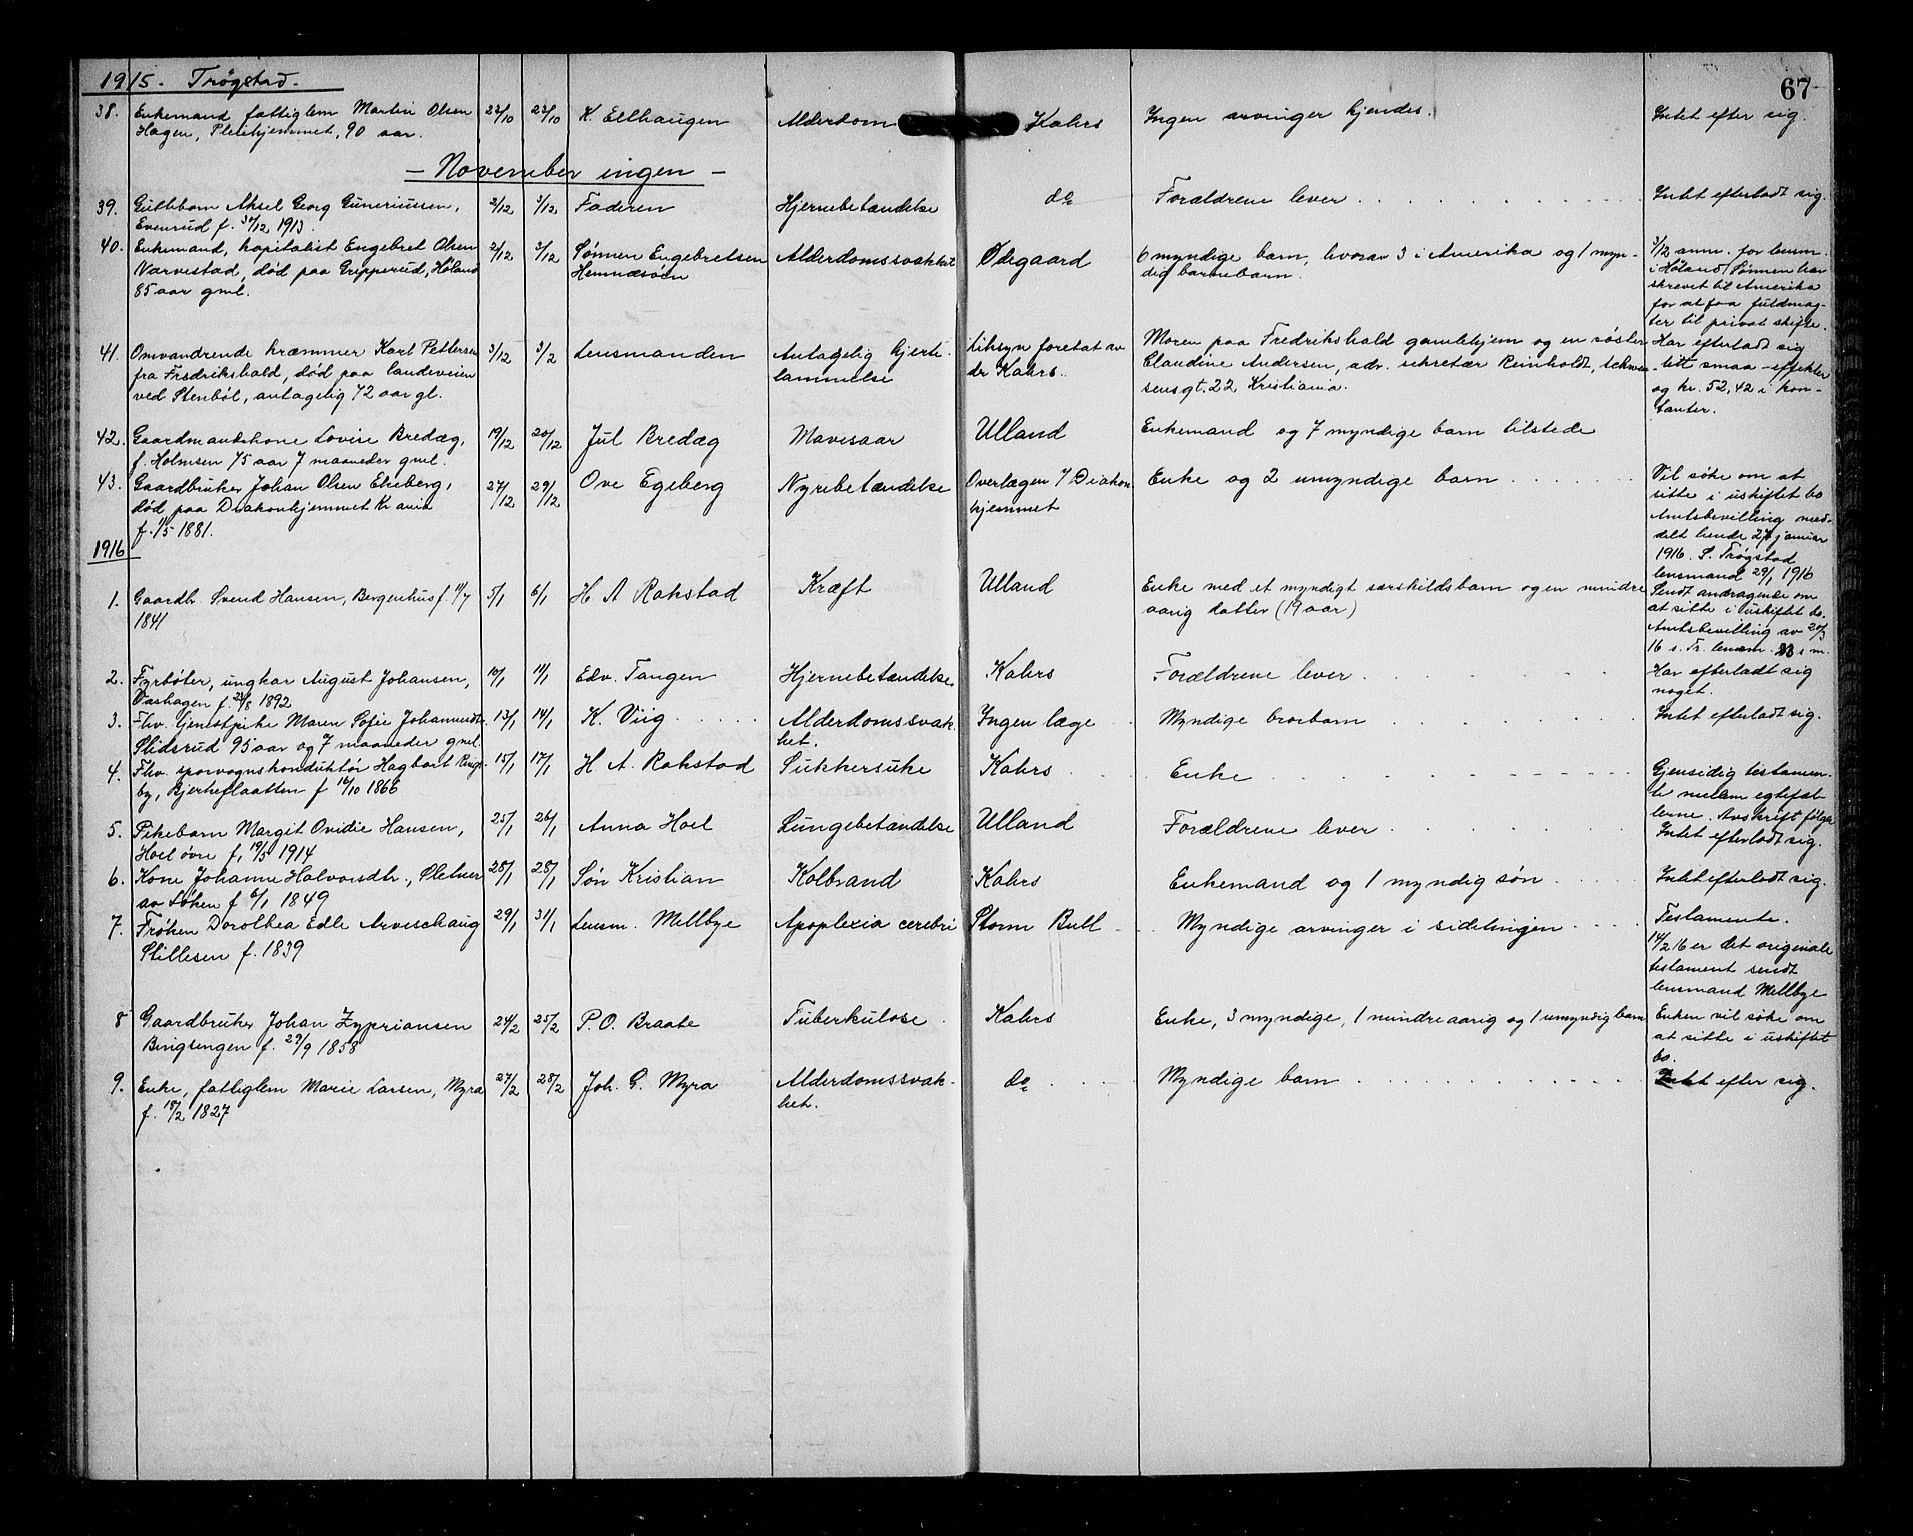 67
1915. Trøgstad.
38. Enkemand, fattiglem Martin Olsen 23/10 23/10 K. Eelhaugen Alderdom Kahrs Ingen arvinger kjendes. Intet efter sig.
Hagen, Pleiehjemmet, 90 aar.
- November ingen -
39. Guttebarn Aksel Georg Guneriussen, 2/12 3/12 Faderen Hjernebetændelse do Forældrene lever Intet efterladt sig.
Evenrud f. 30/12 1913.
40. Enkemand, kapitalist Engebret Olsen 2/12 3/12 Sønnen Engebretsen Alderdomssvakhet Ødegaard 6 myndige barn, hvorav 3 i Amerika og 1 myn- 3/12 anm. for lensm.
Varvestad, død paa Gripperud, Høland Hemnæsøen dig barnebarn. i Høland. Sønnen har
85 aar gml. skrevet til Amerika
for at faa fuldmag-
ter til privat skifte.
41. Omvandrende kræmmer Karl Pettersen 3/12 3/12 Lensmanden Antagelig hjerte- Liksyn foretat av Moren paa Fredrikshald gamlehjem og en søster Har efterladt sig
fra Fredrikshald, død paa landeveien lammelse dr Kahrs. Claudine Andersen, adr. sekretær Reinholdt, Schwen- litt smaa-effekter
ved Stenbøl, antagelig 72 aar gl. sensgt. 22 Kristiania. og kr. 52,42 i kon-
tanter.
42. Gaardmandskone Lovise Bredæg, 19/12 20/12 Jul Bredæg Mavesaar Ulland Enkemand og 7 myndige barn tilstede
f. Holmsen 75 aar 7 maaneder gml.
43. Gaardbruker Johan Olsen Ekeberg, 27/12 29/12 Ove Egeberg Nyrebetændelse Overlægen v/ Diakon- Enke og 2 umyndige barn Vil søke om at
død paa Diakonhjemmet Kr.ania hjemmet sitte i uskiftet bo
f. 1/5 1881. Amtsbevilling med-
delt hende 27 januar
1916. S. Trøgstad
lensmand 29/1 1916
1916
1. Gaardbr. Svend Hansen, Bergenhus f. 11/7 5/1 6/1 H A Rakstad Kræft Ulland Enke med et myndigt særskildsbarn og en mindre- Sendt andragende om
1841 aarig datter (19 aar) at sitte i uskiftet bo.
Amtsbevilling av 20/3
16 s. Tr. lensm. 23 s m.
2. Fyrbøter, ungkar August Johansen, 10/1 11/1 Edv. Tangen Hjernebetændelse Kahrs Forældrene lever Har efterladt sig
Vashagen f. 23/8 1892 noget.
3. Fhv. tjenestpike Maren Sofie Johannesdtr 13/1 14/1 K. Viig Alderdomssvak- Ingen læge Myndige brorbarn Intet efterladt sig.
Slidsrud 95 aar og 7 maaneder gml. het.
4. Fhv. sporvognskonduktør Hagbart Rings- 15/1 17/1 H. A. Rakstad Sukkersuke Kahrs Enke Gjensidig testamen-
by, Bjerkeflaatten f 16/10 1866 te mellem egtefæl-
lerne. Avskrift følger
5. Pikebarn Margit Ovidie Hansen, 25/1 26/1 Anna Hoel Lungebetændelse Ulland Forældrene lever Intet efterladt sig.
Hoel øvre f. 19/5 1914
6. Kone Johanne Halvorsdtr., Sletner 28/1 28/1 Søn Kristian Kolbrand Kahrs Enkemand og 1 myndig søn Intet efterladt sig.
av Søken f 6/1 1849
7. Frøken Dorothea Edle Arveschaug 29/1 31/1 Lensm. Mellbye Apoplexia cerebri Storm Bull Myndige arvinger i sidelinjen Testamente.
Stillesen f. 1839 14/2 16 er det originale
testament sendt
lensmand Mellbye
8 Gaardbruker Johan Zypriansen 24/2 25/2 P.O. Braate Tuberkulose Kahrs Enke, 3 myndige, 1 mindreaarig og 1 umyndig barn Enken vil søke om
Bingsengen f. 29/9 1858 at sitte i uskiftet
bo.
9. Enke, fattiglem Marie Larsen, Myra 27/2 28/2 Joh. G. Myra Alderdomssvak- do Myndige barn Intet efter sig.
f. 18/2 1827 het.